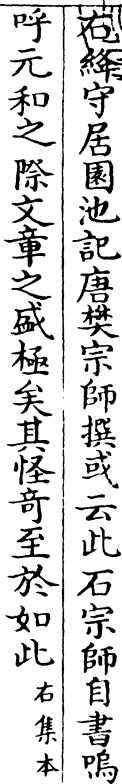 右絳守居園池記唐樊宗師撰或云此石宗師自書嗚
呼元和之際文章之盛極矣其怪奇至於如此右集本